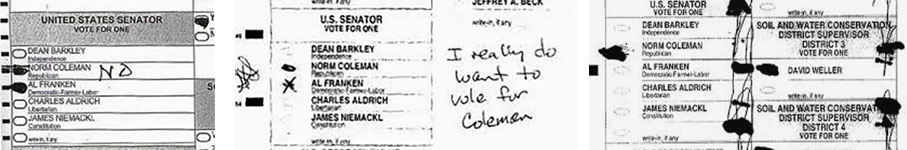 write-in, if any
UNITED STATES SENATOR
VOTE FOR ONE
DEAN BARKLEY
Independence
NORM COLEMAN
Republican
NO
AL FRANKEN
Democratic-Farmer-Labor
CHARLES ALDRICH
Libertarian
JAMES NIEMACKL
Constitution
write-in, if any
write-in, if any
U.S. SENATOR
VOTE FOR ONE
DEAN BARKLEY
Independence
NORM COLEMAN
Republican
AL FRANKEN
Democratic-Farmer-Labor
CHARLES ALDRICH
Libertarian
JAMES NIEMACKL
Constitution
write-in, if any
JEFFREY A. BECK
write-in, if any
I really do
want to
vote for
Coleman
U.S. SENATOR
VOTE FOR ONE
DEAN BARKLEY
Independence
NORM COLEMAN
Republican
AL FRANKEN
Democratic-Farmer-Labor
CHARLES ALDRICH
Libertarian
JAMES NIEMACKL
Constitution
write-in, if any
write-in, if any
SOIL AND WATER CONSERVATION
DISTRICT SUPERVISOR
DISTRICT 3
VOTE FOR ONE
DAVID WELLER
write-in, if any
SOIL AND WATER CONSERVATION
DISTRICT SUPERVISOR
DISTRICT 4
VOTE FOR ONE